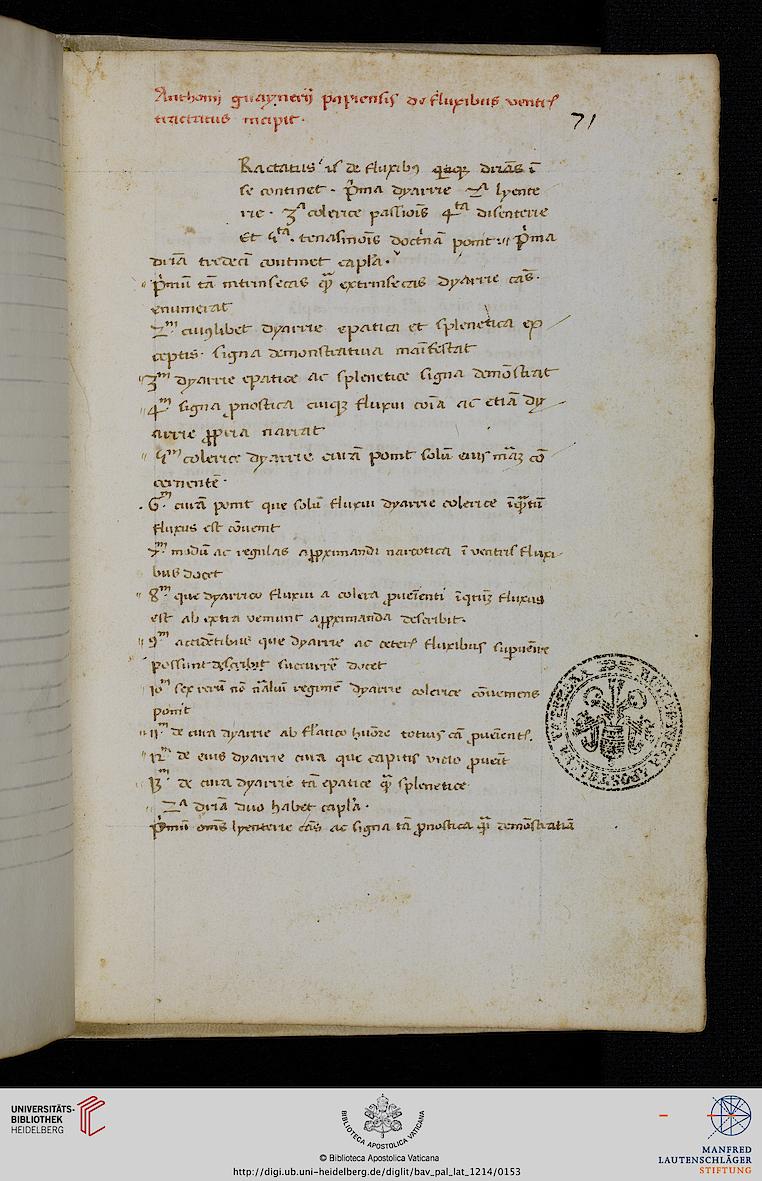 Anthonij guaynerij papiensis de fluxibus ventris
tractatus incipit.
71
Ractatus iste de fluxibus quinque dirās ī
se continet. p̄ma dyarrie 2a lyente
rie. 3a colerice passiōis 4ta disenterie
Et 5ta. tenasmōis doctnām ponit. p̄ma
dirā tredecī continet capla.
p̄mū tā intrinsecas quā extrinsecas dyarrie cās.
enumerat
2m cuiuslibet dyarrie epatica et splenetica ex
ceptis. signa demonstratiua maifestat
3m dyarrie epatice ac splenetice signa demōstrat
4m signa pnostica cuiqz fluxui coīa ac etiā dy
arrie ppria narrat
5m colerice dyarrie curā ponit solū eius māz cō
cernentē.
6m curā ponit que solū fluxui dyarrie colerice īqtū
fluxus est cōuenit
7m modū ac regulas approximandi narcotica ī ventris fluxi
bus docet
8m que dyarrico fluxui a colera pueīenti īqtūz fluxus
est ab extra veniunt approximanda describit.
9m accidētibus que dyarrie ac ceteris fluxibus supuēire
possunt describit succurrē docet
10m sex rerū nō nāliū regimē dyarrie colerice cōueniens
ponit
11m de cura dyarrie ab flatico huōre totius cā pueientis.
12m de eius dyarrie cura que capitis vicio pueīt
13m de cura dyarrie tā epatice quā splenetice
2a dirā duo habet capla.
p̄mū ōnis lyenterie cās ac signa tā pnostica quā demōstratiā
UNIVERSITÄTS-
BIBLIOTHEK
HEIDELBERG
BIBLIOTECA APOSTOLICA VATICANA
© Biblioteca Apostolica Vaticana
http://digi.ub.uni-heidelberg.de/diglit/bav_pal_lat_1214/0153
MANFRED
LAUTENSCHLÄGER
STIFTUNG